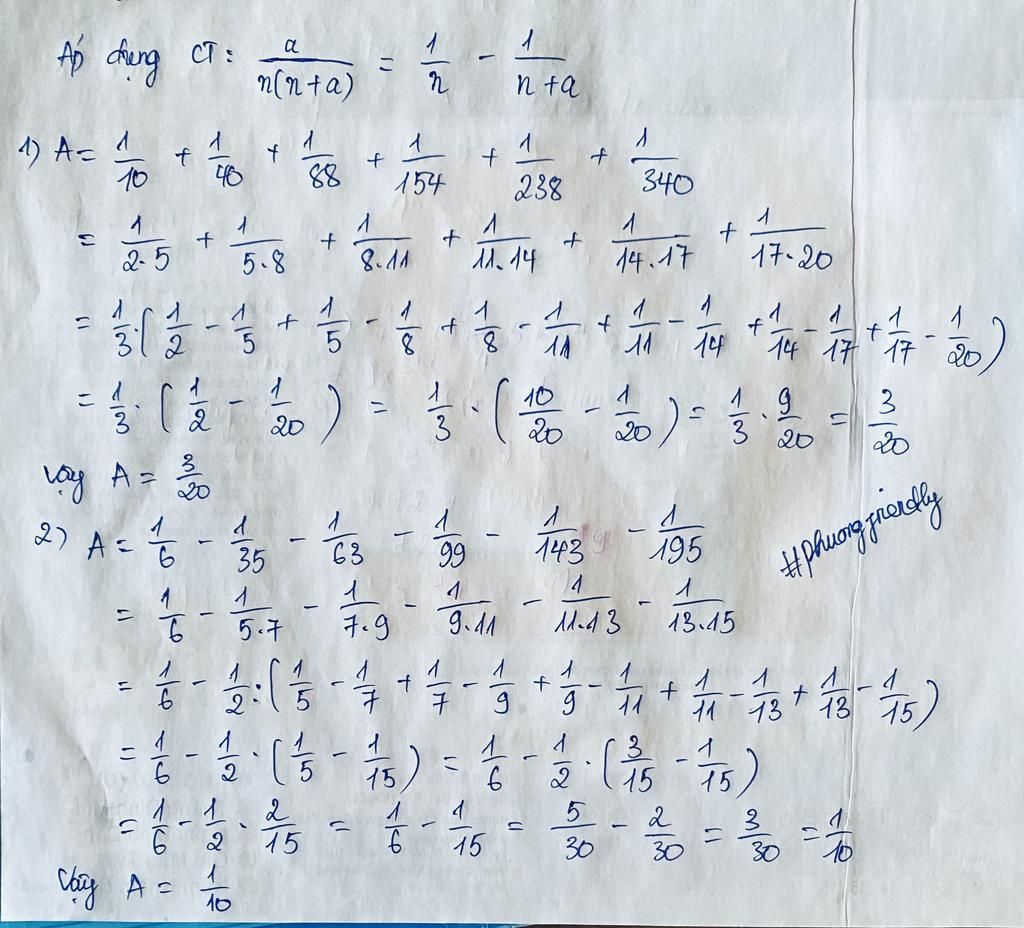 Áp dụng CT: a/n(n+a) = 1/n - 1/n+a
1) A = 1/10 + 1/40 + 1/88 + 1/154 + 1/238 + 1/340
= 1/2.5 + 1/5.8 + 1/8.11 + 1/11.14 + 1/14.17 + 1/17.20
= 1/3.(1/2 - 1/5 + 1/5 - 1/8 + 1/8 - 1/11 + 1/11 - 1/14 + 1/14 - 1/17 + 1/17 - 1/20)
= 1/3.(1/2 - 1/20) = 1/3.(10/20 - 1/20) = 1/3.9/20 = 3/20
Vậy A = 3/20
#phuongfriendly
2) A = 1/6 - 1/35 - 1/63 - 1/99 - 1/143 - 1/195
= 1/6 - 1/5.7 - 1/7.9 - 1/9.11 - 1/11.13 - 1/13.15
= 1/6 - 1/2:(1/5 - 1/7 + 1/7 - 1/9 + 1/9 - 1/11 + 1/11 - 1/13 + 1/13 - 1/15)
= 1/6 - 1/2.(1/5 - 1/15) = 1/6 - 1/2.(3/15 - 1/15)
= 1/6 - 1/2.2/15 = 1/6 - 1/15 = 5/30 - 2/30 = 3/30 = 1/10
Vậy A = 1/10